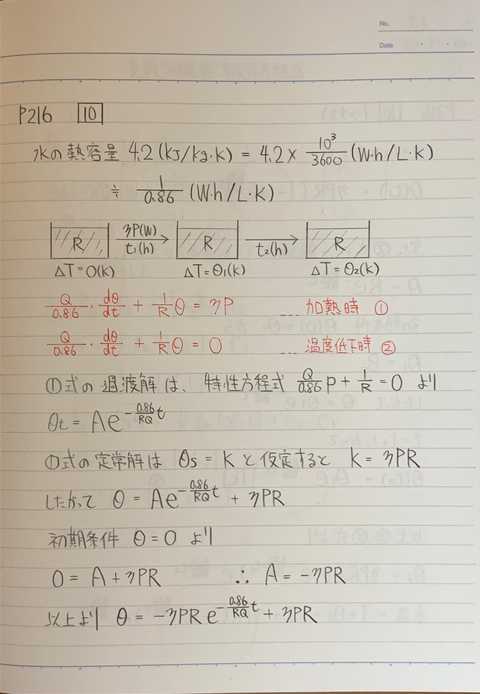 No.
Date
P216 10
水の熱容量 4.2 (kJ/kg・K) = 4.2 × 10³/3600 (W・h/L・K)
≒ 1/0.86 (W・h/L・K)
R ηP(W) t₁(h) R t₂(h) R
ΔT=0(K) ΔT=θ₁(K) ΔT=θ₂(K)
Q/0.86・dθ/dt + 1/R θ = ηP … 加熱時 ①
Q/0.86・dθ/dt + 1/R θ = 0 … 温度低下時 ②
①式の過渡解は、特性方程式 Q/0.86 P + 1/R = 0 より
θt = Ae^(-0.86/RQ t)
①式の定常解は θs = K と仮定すると K = ηPR
したがって θ = Ae^(-0.86/RQ t) + ηPR
初期条件 θ=0 より
0 = A + ηPR ∴ A = -ηPR
以上より θ = -ηPR e^(-0.86/RQ t) + ηPR